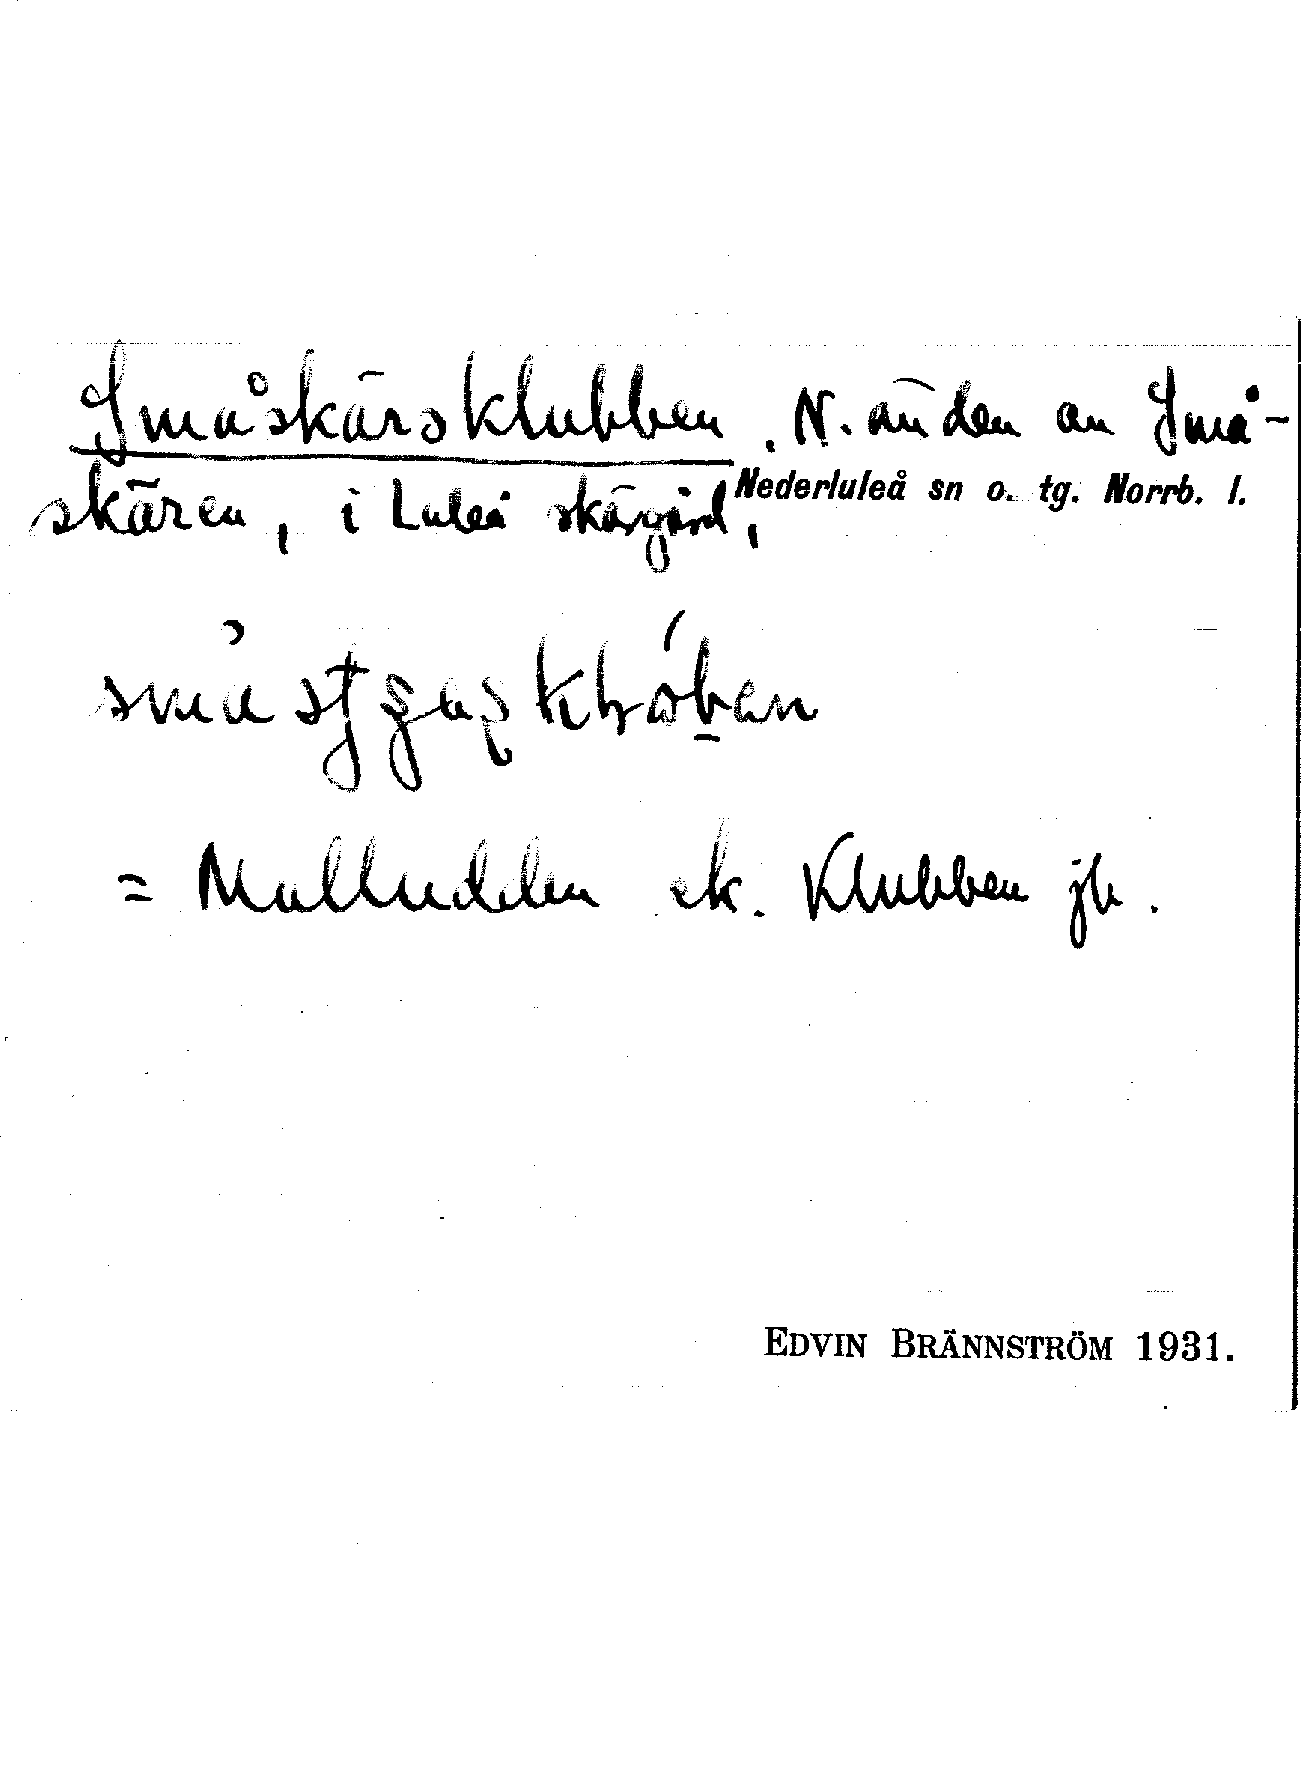 Småskärsklubben. N. änden av Små-
skären, i Luleå skärgård,
Nederluleå sn o. tg. Norrb. l.
= Malludden ek. Klubben jb.
EDVIN BRÄNNSTRÖM 1931.